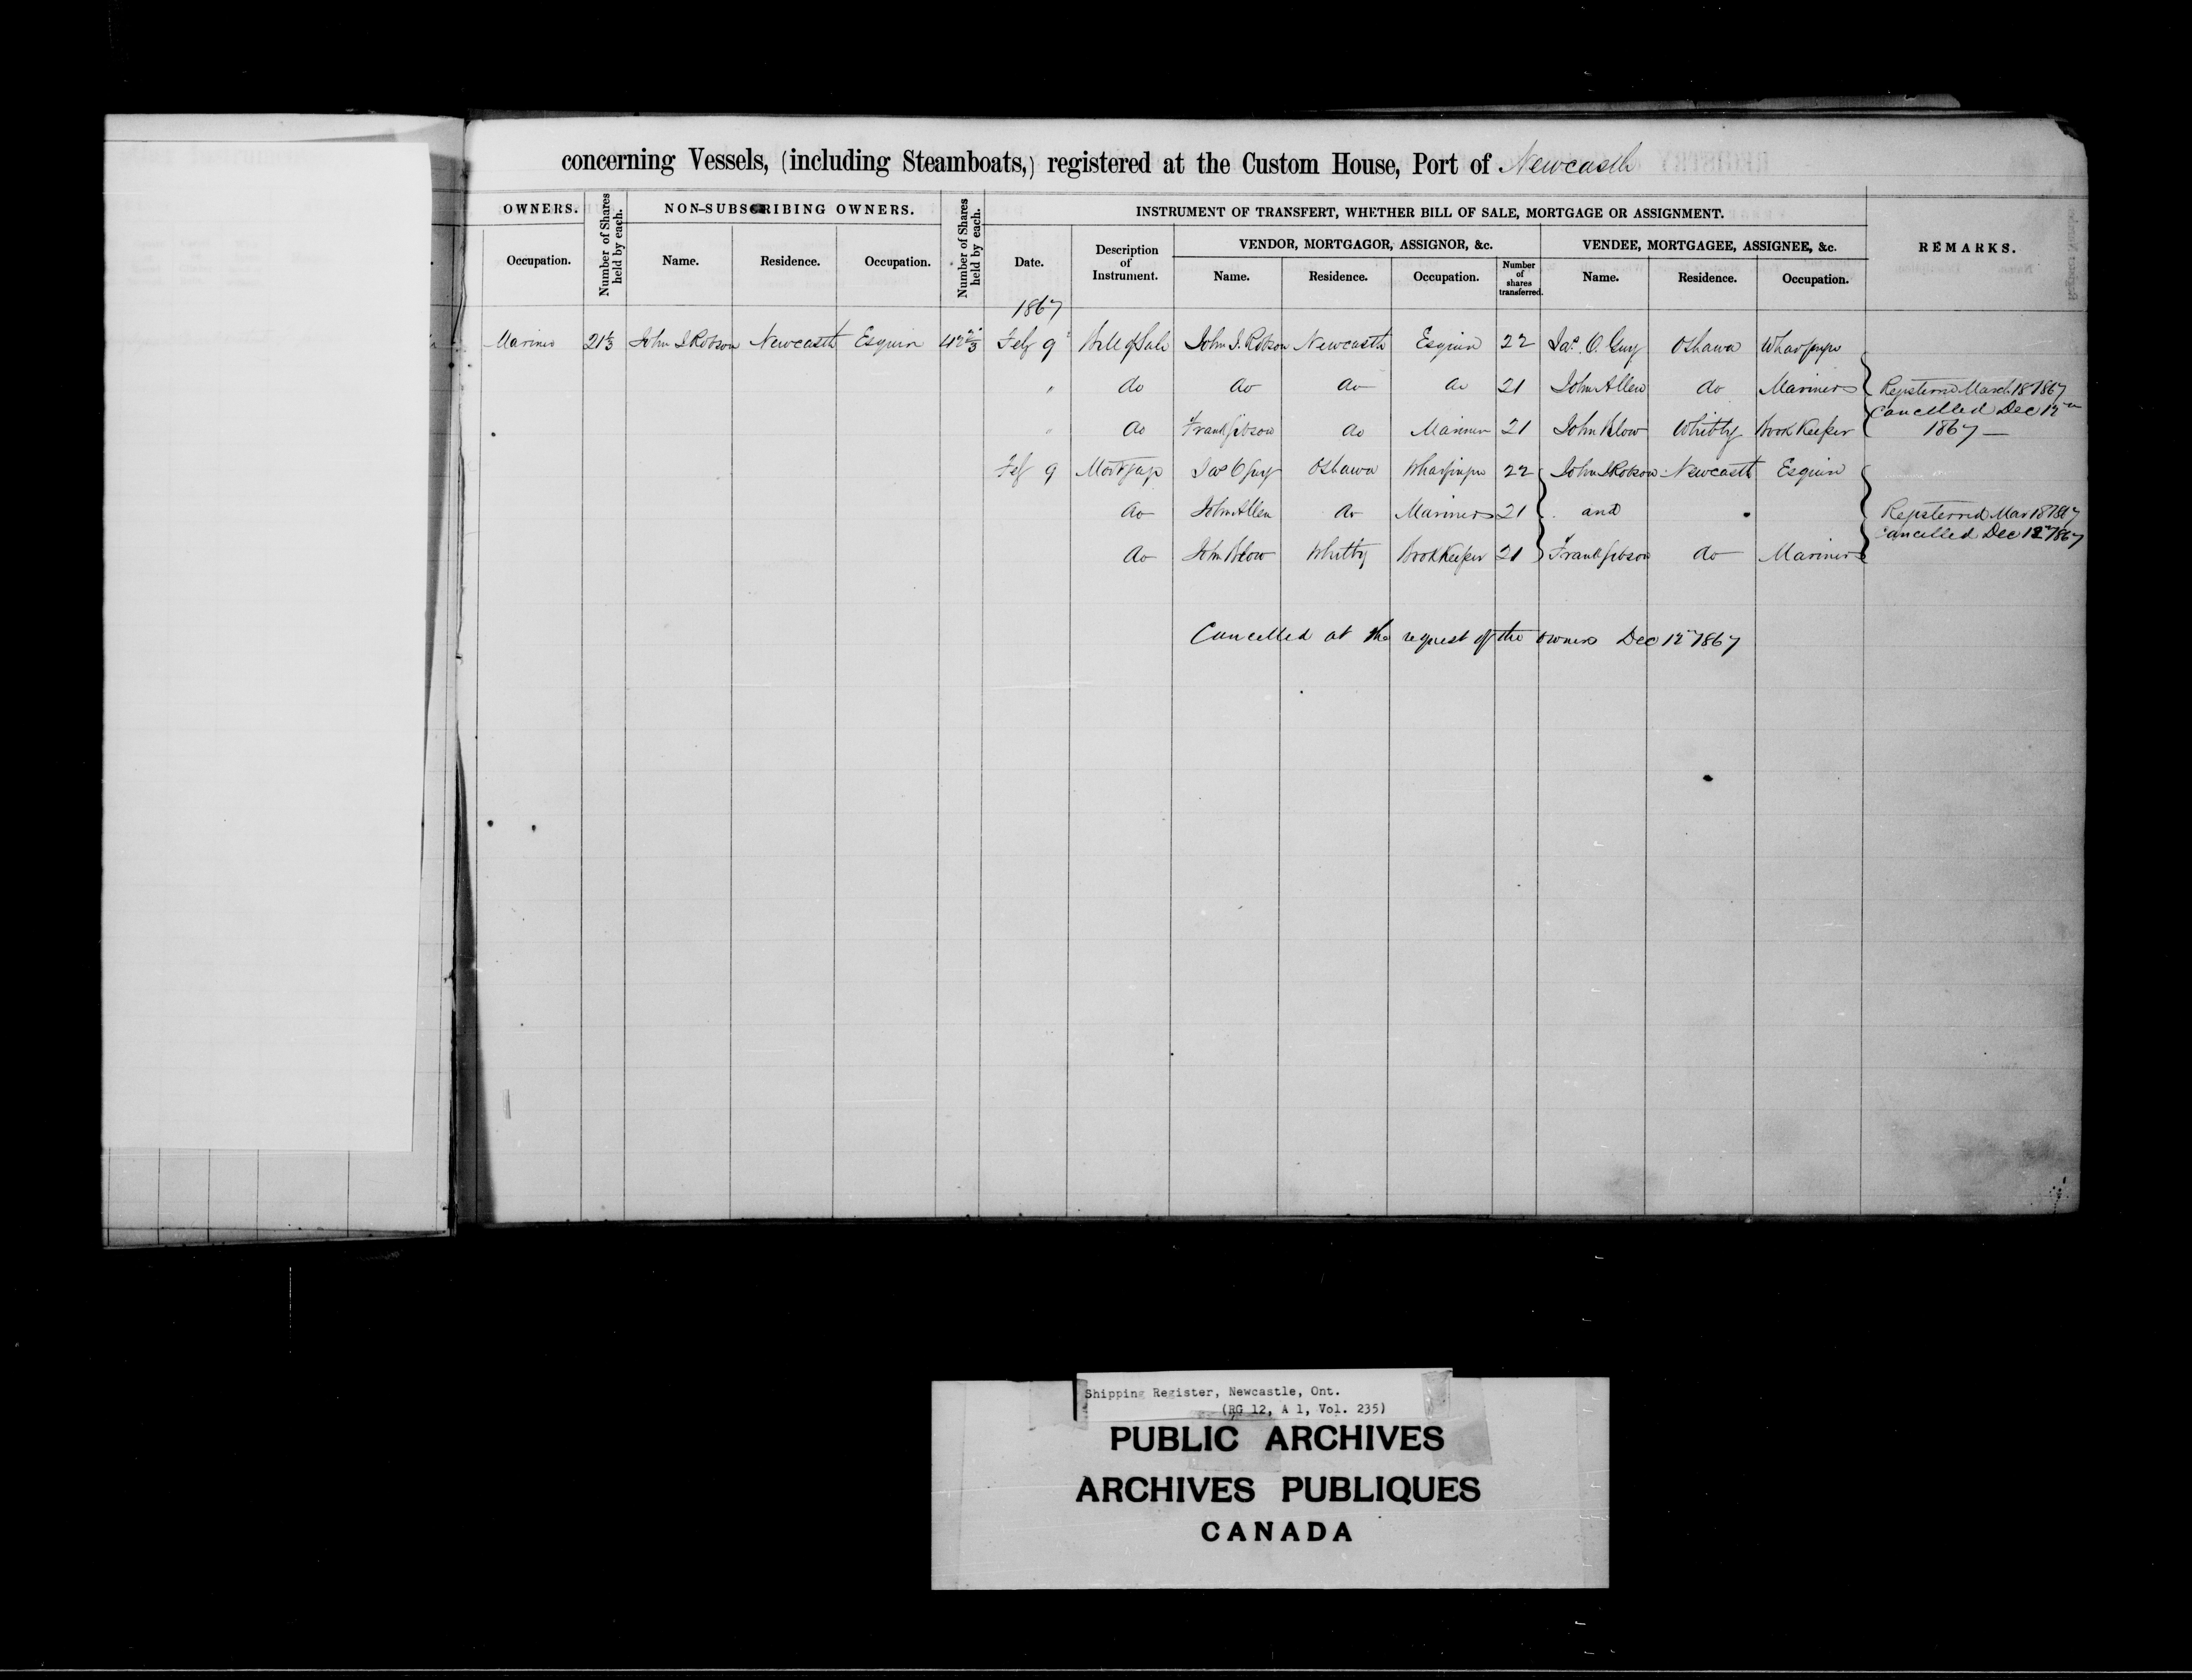 concerning Vessels, (including Steamboats,) registered at the Custom House, Port of Newcastle
OWNERS. Number of Shares held by each. NON-SUBSCRIBING OWNERS. Number of Shares held by each. INSTRUMENT OF TRANSFERT, WHETHER BILL OF SALE, MORTGAGE OR ASSIGNMENT. REMARKS.
VENDOR, MORTGAGOR, ASSIGNOR, &c. VENDEE, MORTGAGEE, ASSIGNEE, &c.
Occupation. Name. Residence. Occupation. Date. Description of Instrument. Name. Residence. Occupation. Number of shares transferred. Name. Residence. Occupation.
1867
Mariner 21⅓ John I. Robson Newcastle Esquire 42⅔ Feb 9 Bill of Sale John I. Robson Newcastle Esquire 22 Jas. O. Guy Oshawa Wharfinger
" do do do do 21 John Allen do Mariner
Registered March 18 1867
Cancelled Dec 12th
" do Frank Gibson do Mariner 21 John Blow Whitby Book Keeper
1867 —
Feb 9 Mortgage Jas O Guy Oshawa Wharfinger 22 John I Robson Newcastle Esquire
do John Allen do Mariner 21 and
Registered Mar 18 1867
Cancelled Dec 12th 1867
do John Blow Whitby Book Keeper 21 Frank Gibson do Mariner
Cancelled at the request of the owners Dec 12th 1867
Shipping Register, Newcastle, Ont.
(RG 12, A 1, Vol. 235)
PUBLIC ARCHIVES
ARCHIVES PUBLIQUES
CANADA